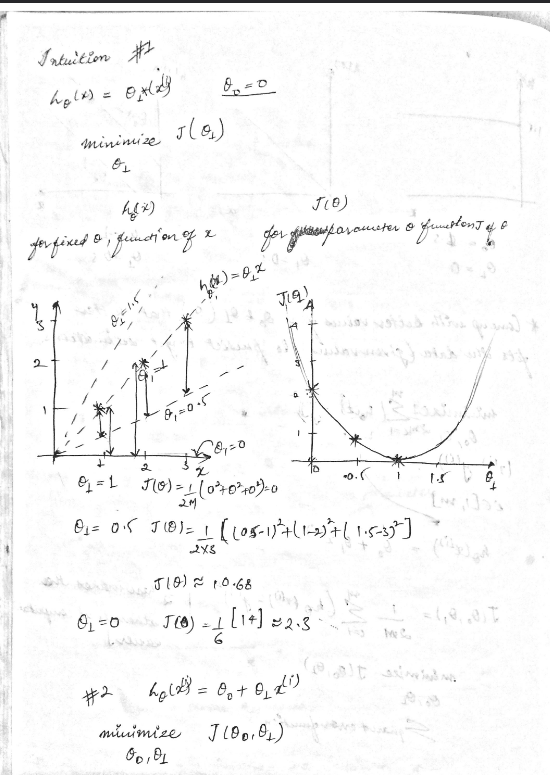 Intuition #1
hθ(x) = θ1*(x^(i)) θ0 = 0
minimize J(θ1)
θ1
hθ(x) J(θ)
for fixed θ, function of x for parameter θ function J of θ
hθ1(x) = θ1x
θ1=1.5
y
3
2
1
θ1=1
θ1=0.5
θ1=0
1 2 3 x
J(θ1)
4
3
2
1
0 0.5 1 1.5 θ1
θ1 = 1 J(θ) = 1/2M (0²+0²+0²)=0
θ1 = 0.5 J(θ) = 1/2×3 [(0.5-1)²+(1-2)²+(1.5-3)²]
J(θ) ≈ 0.68
θ1=0 J(θ) = 1/6 [14] ≈ 2.3
#2 hθ(x^(i)) = θ0 + θ1 x^(i)
minimize J(θ0,θ1)
θ0,θ1